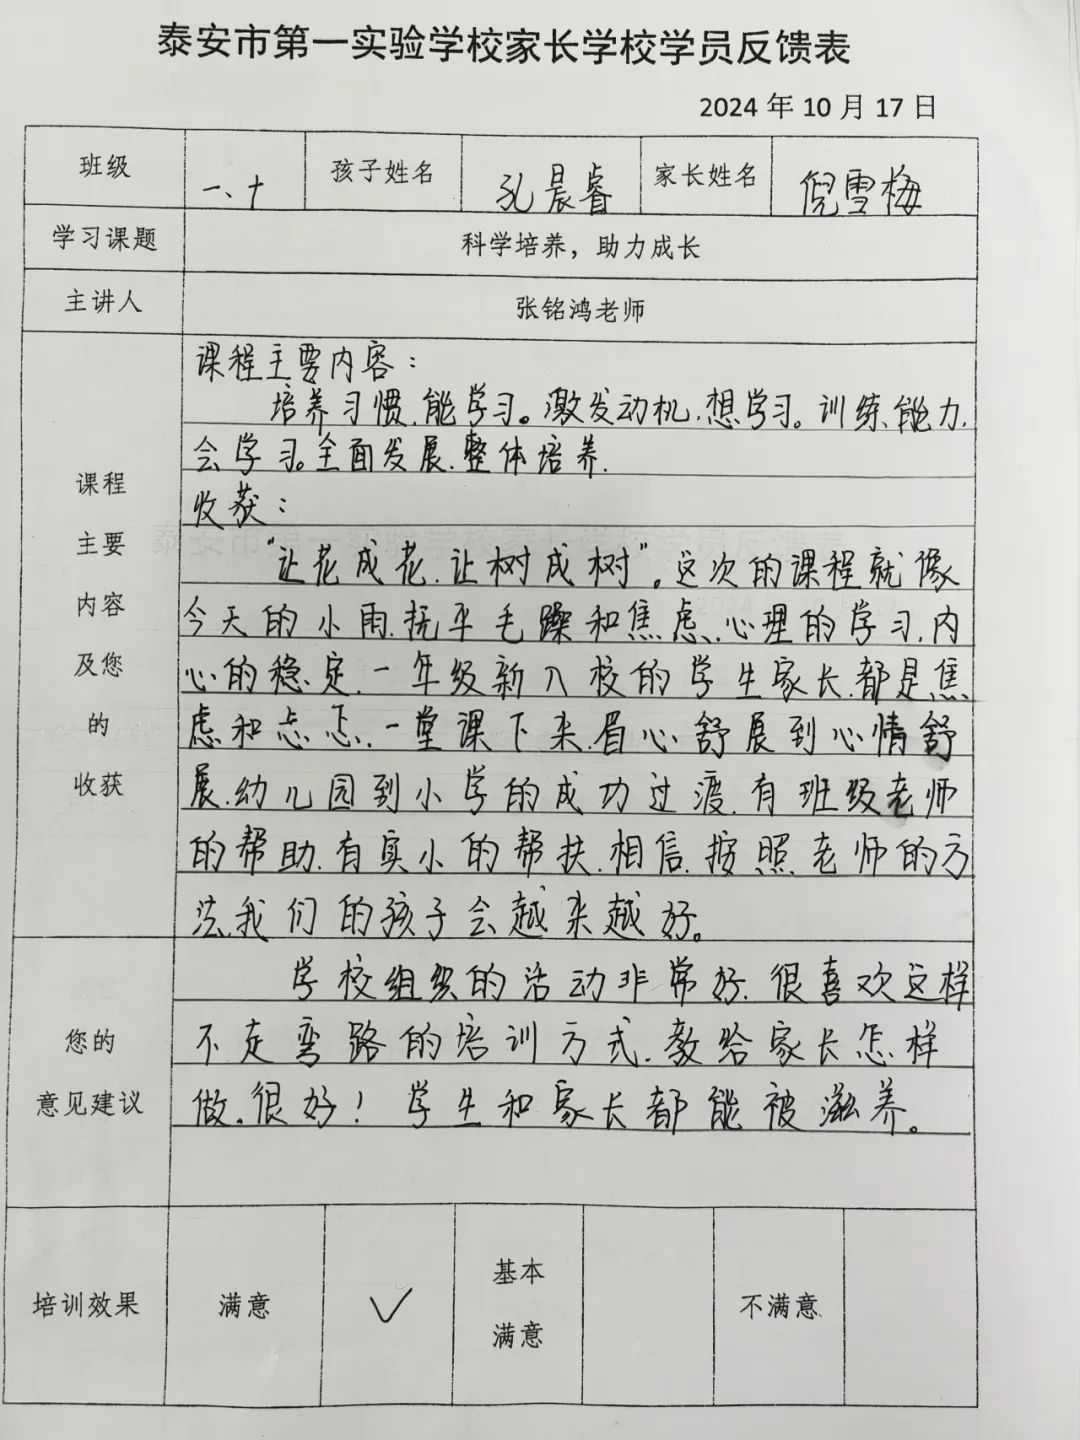 泰安市第一实验学校家长学校学员反馈表
2024 年 10 月 17 日
班级 一、十 孩子姓名 孔晨睿 家长姓名 倪雪梅
学习课题 科学培养，助力成长
主讲人 张铭鸿老师
课程
主要
内容
及您
的
收获
课程主要内容：
培养习惯，能学习。激发动机，想学习。训练能力，
会学习。全面发展，整体培养.
收获：
“让花成花，让树成树”。这次的课程就像
今天的小雨，抚平毛躁和焦虑，心理的学习，内
心的稳定，一年级新入校的学生家长，都是焦
虑和忐忑，一堂课下来，眉心舒展到心情舒
展，幼儿园到小学的成功过渡，有班级老师
的帮助，有实小的帮扶，相信，按照老师的方
法，我们的孩子会越来越好。
您的
意见建议
学校组织的活动非常好，很喜欢这样
不走弯路的培训方式，教给家长怎样
做，很好！学生和家长都能被滋养。
培训效果 满意 ✓ 基本
满意 不满意